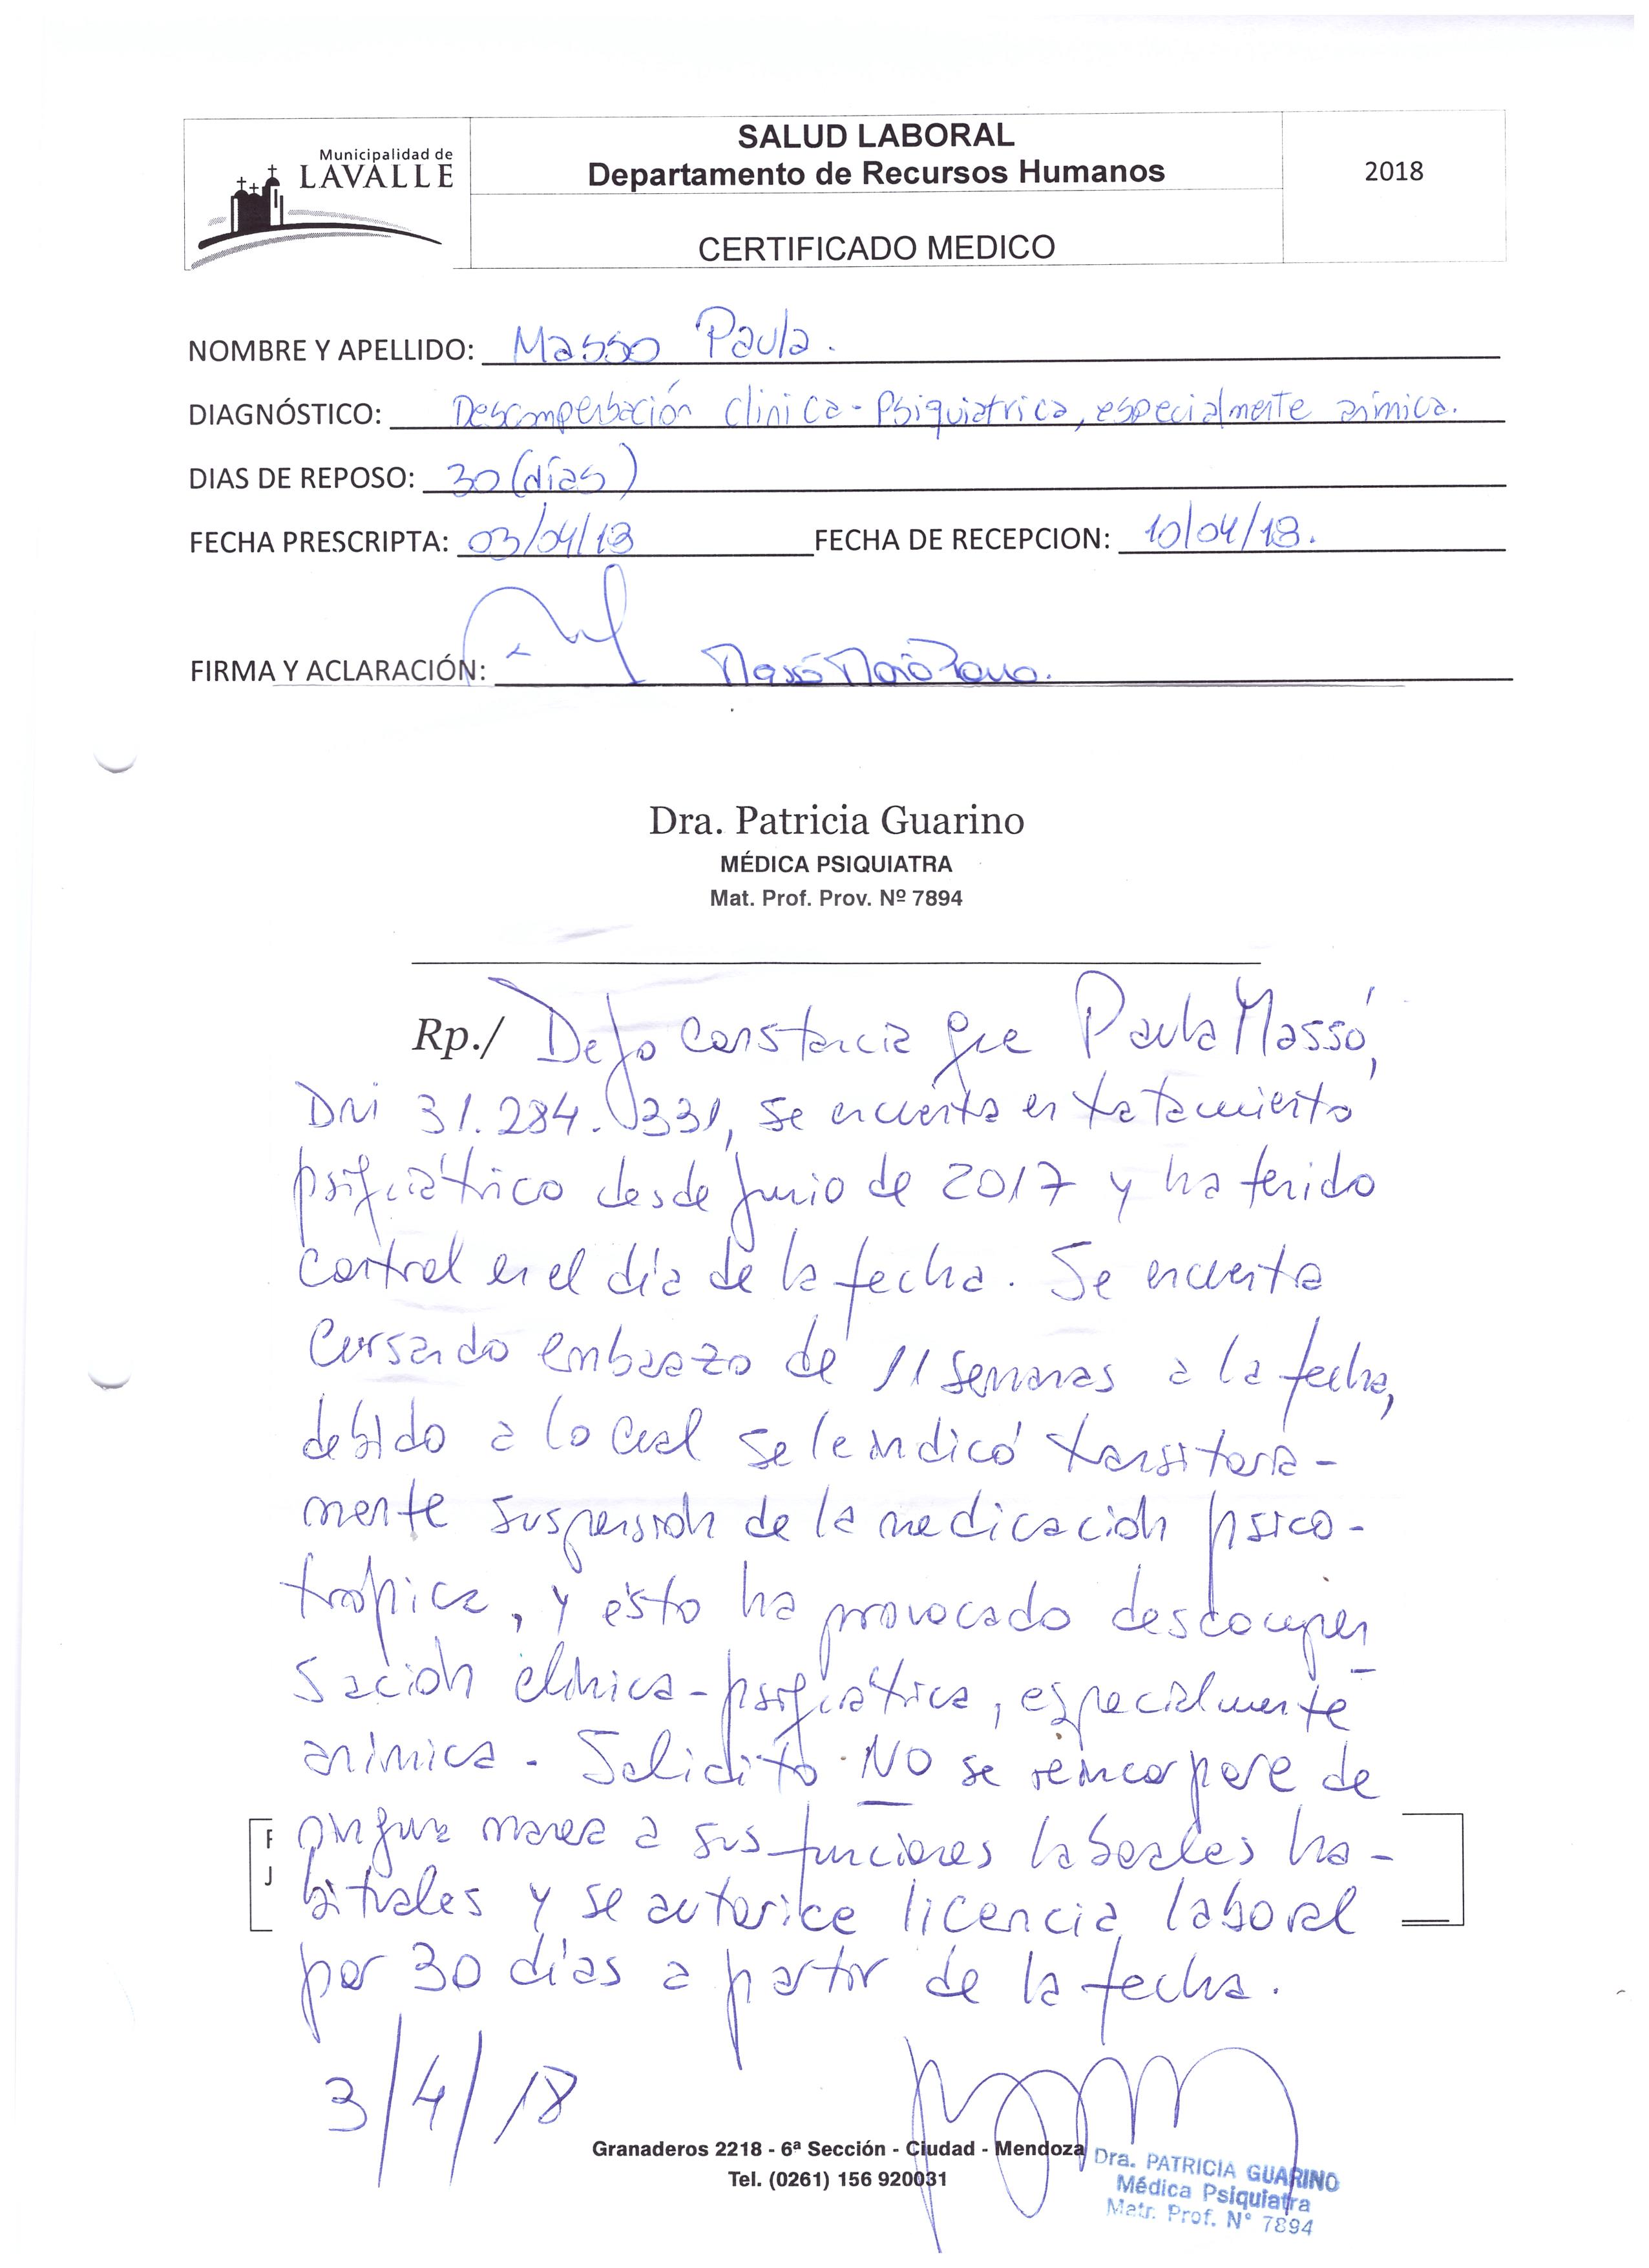 Municipalidad de
LAVALLE
SALUD LABORAL
Departamento de Recursos Humanos
2018
CERTIFICADO MEDICO
NOMBRE Y APELLIDO: Masso Paula.
DIAGNÓSTICO: Descompensación clinica - Psiquiatrica, especialmente anímica.
DIAS DE REPOSO: 30 (días)
FECHA PRESCRIPTA: 03/04/18 FECHA DE RECEPCION: 10/04/18.
FIRMA Y ACLARACIÓN: Massó
Dra. Patricia Guarino
MÉDICA PSIQUIATRA
Mat. Prof. Prov. Nº 7894
Rp./ Dejo constancia que Paula Massó,
Dni 31.284.331, se encuentra en tratamiento
psiquiátrico desde junio de 2017 y ha tenido
control en el día de la fecha. Se encuentra
cursando embarazo de 11 semanas a la fecha,
debido a lo cual se le indicó transitoria-
mente suspensión de la medicación psico-
trópica, y ésto ha provocado descompen
sación clínica-psiquiátrica, especialmente
anímica - Solicito NO se reincorpore de
F ninguna manera a sus funciones laborales ha-
J bituales y se autorice licencia laboral
por 30 días a partir de la fecha.
3/4/18
Granaderos 2218 - 6ª Sección - Ciudad - Mendoza
Tel. (0261) 156 920031
Dra. PATRICIA GUARINO
Médica Psiquiatra
Matr. Prof. N° 7894